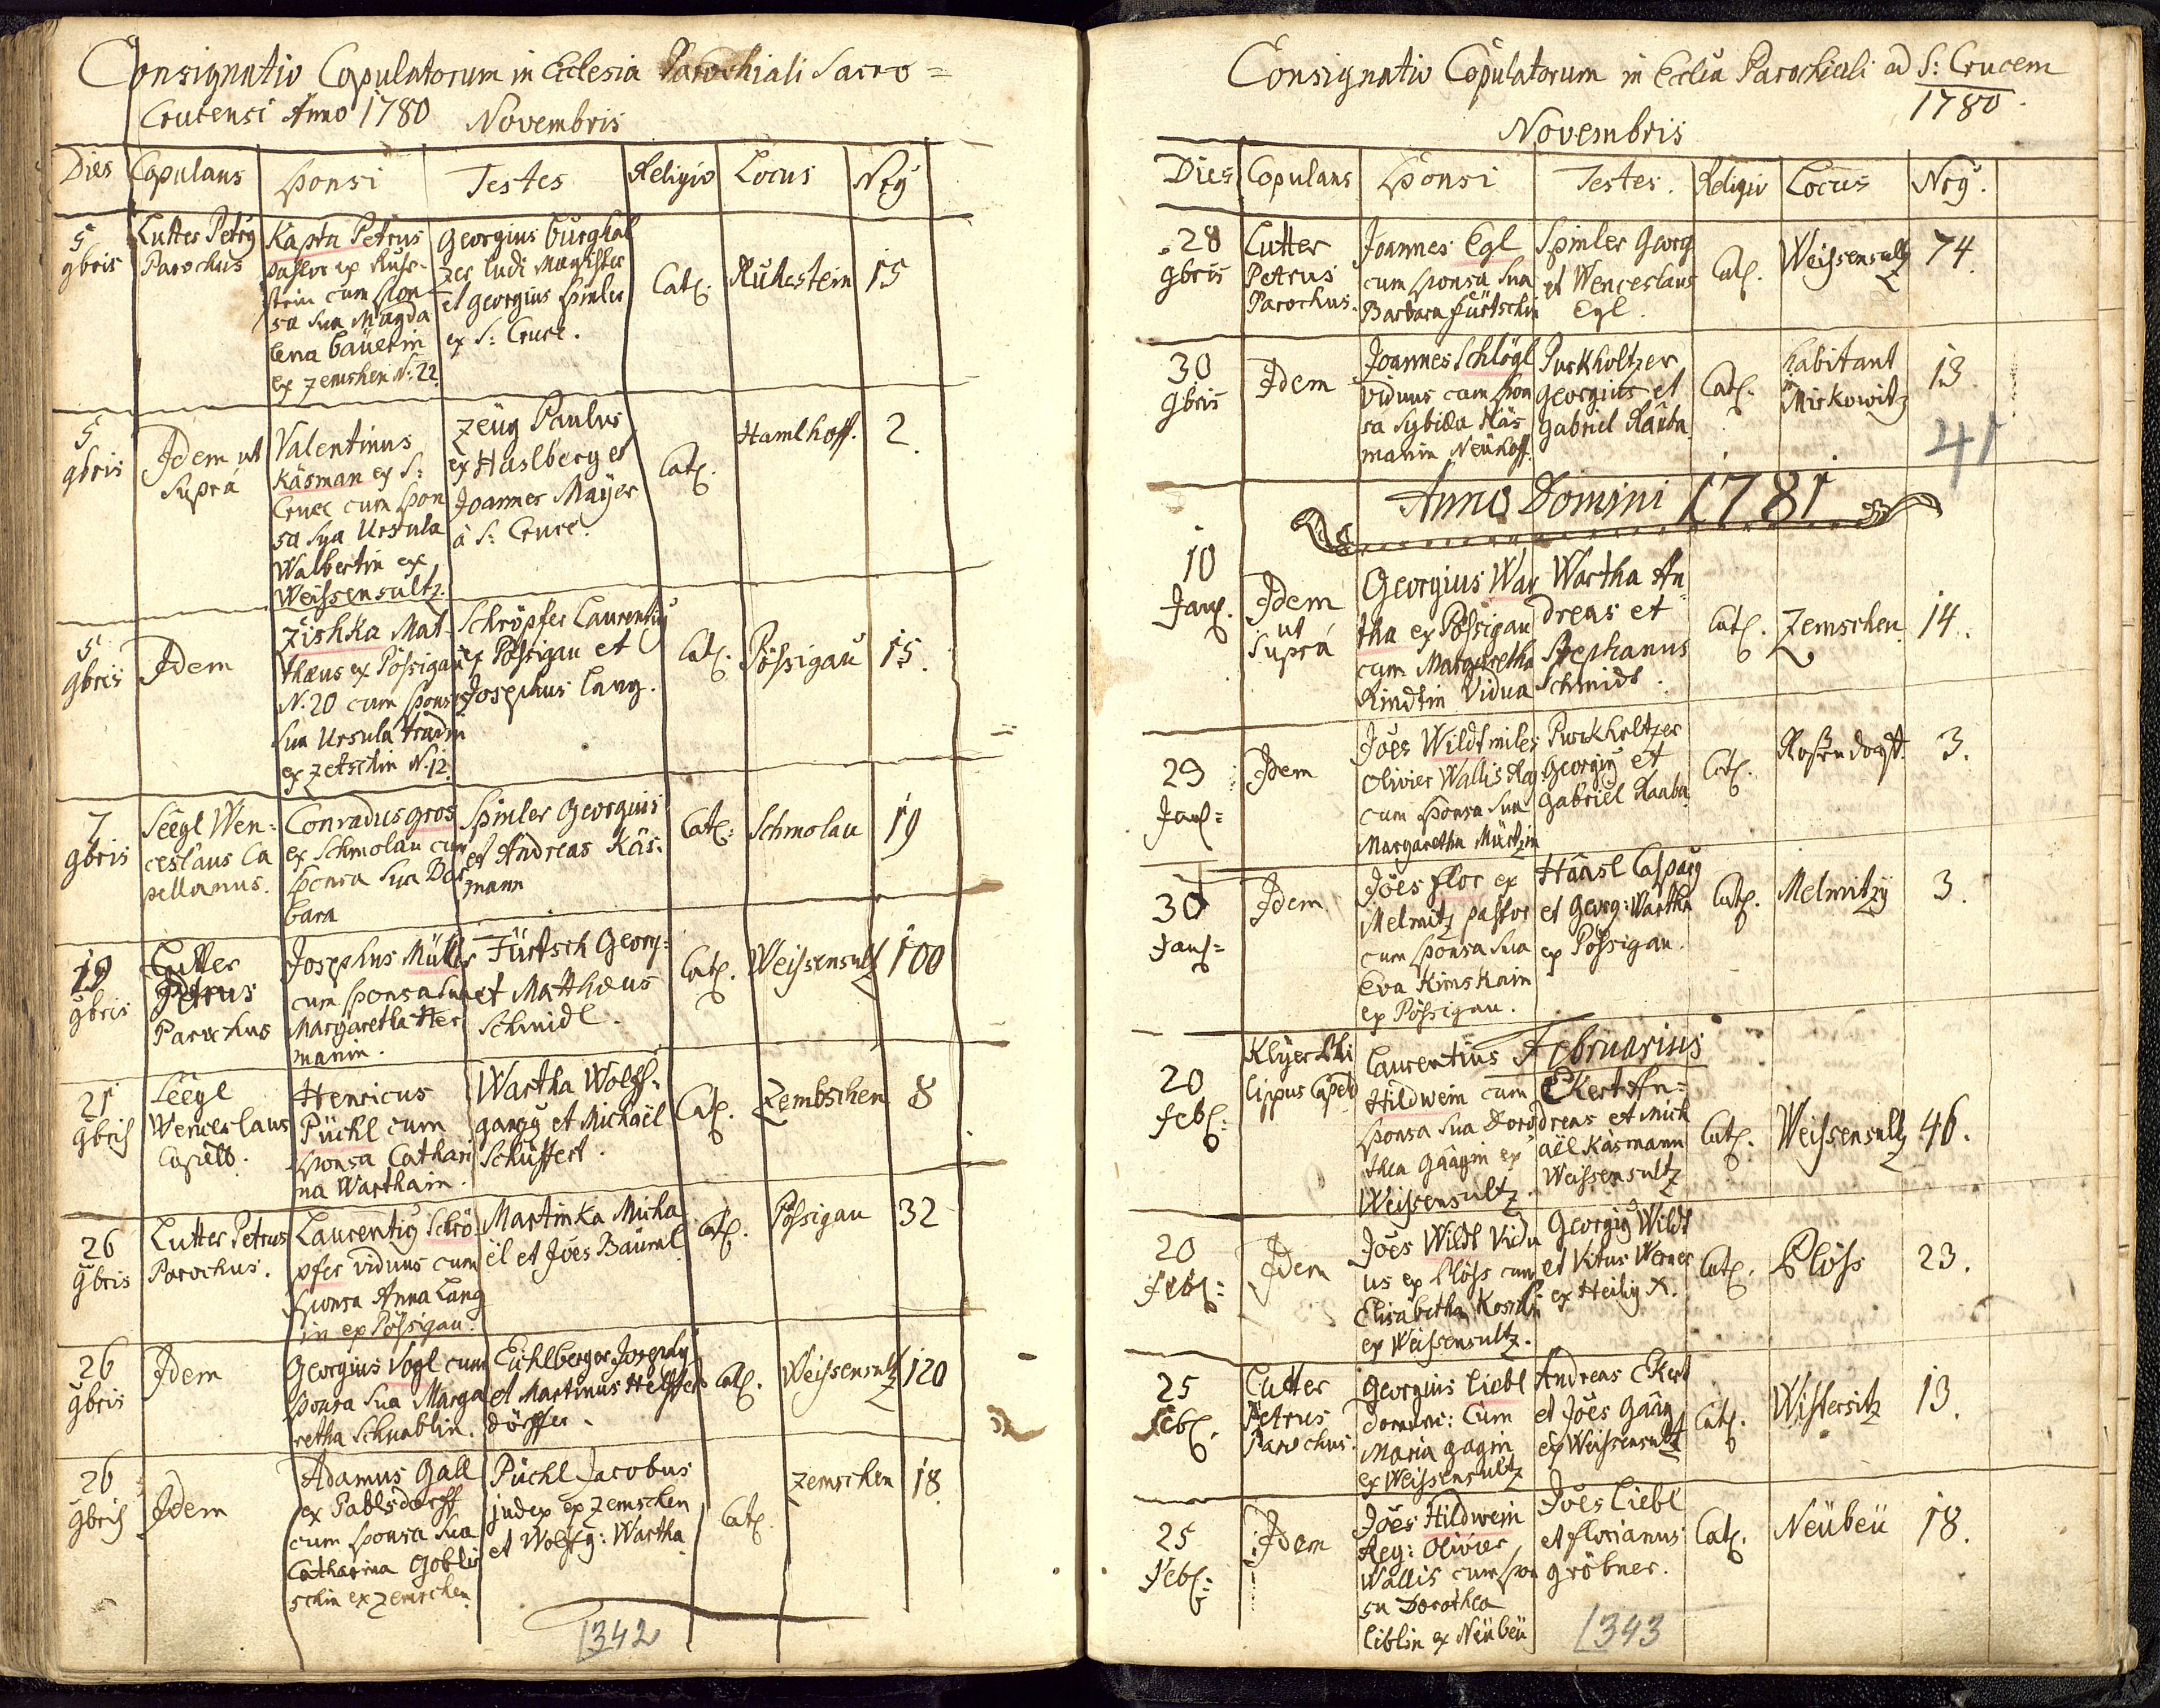 Consignatio Copulatorum in Eclesia Parochiali Sacro=
Crucensi Anno 1780 Novembris
Dies Copulans Sponsi Testes Religio Locus Nrg
5
9bris
Lutter Petrg
Parochus
Kapta Petrus
pastor ex Ruhe-
stein cum spon
sa sua Magda
lena bäuerin
ex zemshen N: 22
Georgius burghal
zer ludi Magister
et georgius Spinler
ex S: Cruce.
Cat.
Ruhestein
15
5
9bris
Idem ut
Supra
Valentinus
Käsman ex S:
Cruce cum spon
sa sua Ursula
Walbertin ex
Weissensultz.
Zeüg Paulus
ex Haslberg et
Joannes Maÿer
à S: Cruce.
Cat.
Hamlhoff.
2
5
9bris
Idem
Zishka Mat
thæus ex Pössigau
N. 20 cum spons
sua Ursula tradin
ex zetschin N. 12
Schröpfer Laurentig
ex Pössigau et
Josephus Lang.
Cat.
Pössigau
15.
7
9bris
Seegl Wen=
ceslaus Ca
pellanus.
Conradus gros
ex Schmolau cum
sponsa sua Bar
bara
Spinler Georgius
et Andreas Käs:
mann
Cat:
Schmolau
19
19
9bris
Lutter
Petrus
Parochus
Josephus Müller
cum sponsa sua
Margaretha Her
manin.
Fürtsch Georg:
et Matthæus
Schmidl.
Cat.
Weissensultz
100
21
9bris
Seegl
Wenceslaus
Capell.
Henricus
Püchl cum
sponsa Cathari
na Warthain.
Wartha Wolff-
gangg et Michaël
Schuffert.
Cat.
Zembschen
8
26
9bris
Lutter Petrus
Parochus.
Laurentig Schrö
pfer viduus cum
sponsa Anna Lang
in ex Pössigau.
Martinka Micha
ël et Joes Baüml
Cat.
Pössigau
32
26
9bris
Idem
Georgius Vogl cum
sponsa sua Marga
retha Schnablin.
Eichlberger Josephg
et Martinus Helffer
dörffer.
Cat.
Weissensultz
120
26
9bris
Idem
Adamus Gall
ex Pablsdorff
cum sponsa sua
Catharina Gobli
schin ex zemschen
Püchl Jacobus
judex ex zemschen
et Wolfg: Wartha
Cat.
zemschen
18
1342
Consignatio Copulatorum in Ecclia Parochiali ad S: Crucem
1780.
Novembris
Dies Copulans Sponsi Testes. Religio Locus Nrg.
28
9bris
Lutter
Petrus
Parochus.
Joannes Egl
cum sponsa sua
Barbara fürtschin
Spinler Georg
et Wenceslaus
Egl.
Cat.
Weissensultz
74
30
9bris
Idem
Joannes Schlögl
viduus cum spon
sa Sybilla Käs
manin Neuhoff.
Purkholtzer
Georgius et
Gabriel Raaba
Cat.
habitant
in
Mirkowitz
13
41
Anno Domini 1781
10
Jan.
Idem
ut
Supra
Georgius War
tha ex Pössigau
cum Margaretha
Rindtin Vidua
Wartha An
dreas et
Stephanus
Schmidt.
Cat.
Zemschen
14.
29
Jan=
Idem
Joes Wildt miles
Olivier Wallis Reg:
cum sponsa sua
Margaretha Märtzin
Purkholtzer
Georgig et
Gabriel Raaba
Cat.
Rosendorff
3.
30
Jan=
Idem
Joes flor ex
Melmitz pastor
cum sponsa sua
Eva Kimskain
ex Pössigau.
Hänsl Casparg
et Georg: Wartha
ex Pössigau.
Cat.
Melmitzÿ
3.
Februarius
20
Feb:
Klÿer Phi
lippus Capell
Laurentius
Hildwein cum
sponsa sua Doro
thea Gäagin ex
Weissensultz.
Ekert An=
dreas et Mich
aël Käsmann
Weissensultz
Cat.
Weissensultz
46.
20
Feb:
Idem
Joes Wildt Vidu
us ex Plöss cum
Elisabetha
ex Weissensultz.
Georgig Wildt
et Vitus Werner
ex Heilig X.
Cat.
Plöss
23.
25
Feb.
Lutter
Petrus
Parochus.
Georgius Liebl
cum
Maria gagin
ex Weissensultz
Andreas Ekert
et Joes Gäag
ex Weissensultz
Cat.
Wistersitz
13.
25
Feb:
Idem
Joes Hildwein
Reg: Olivier
Wallis cum spon
sa Dorothea
liblin ex Neübeü
Joes Liebl
et florianus
gröbner.
Cat.
Neübeü
18.
1343